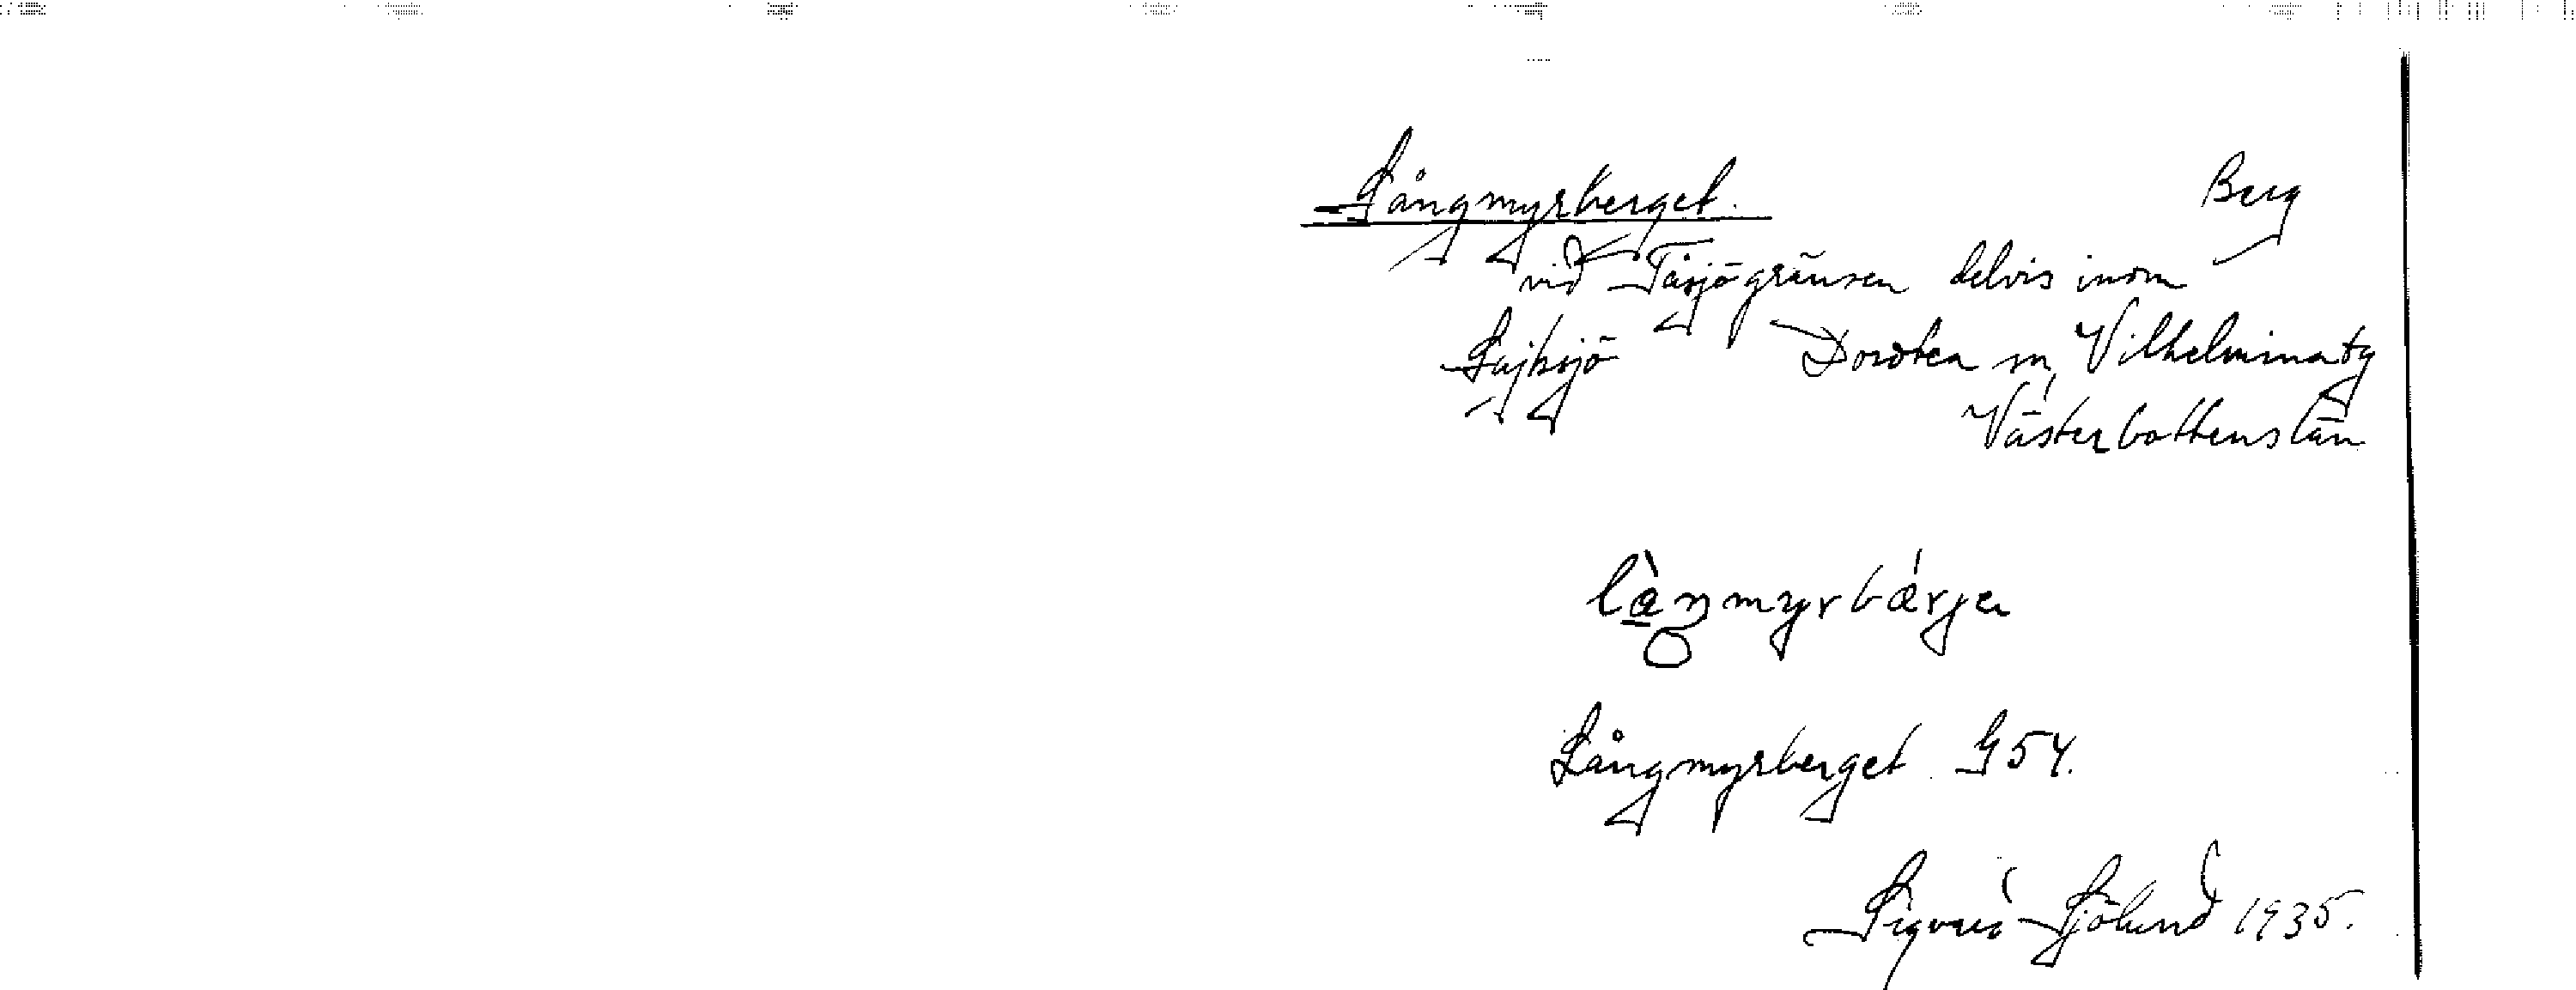 Långmyrberget. Berg
vid Tåsjögränsen delvis inom
Lajksjö Dorotea sn, Vilhelmina tg
Västerbottens län
Långmyrberget G54.
Sjölund 1935.